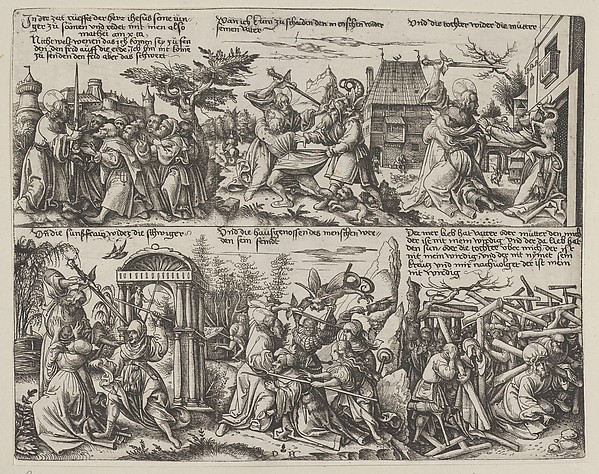 In der zeit rüeffte der herr Jhesus seine iün
ger zü samen und redet mit inen also
mathei am x ca
Nit he welt wenen das ich komen sey zü sen
den den frid auff die erde Ich bin nit kome
zü senden den frid aber das schwert
Wan ich kum zu schaiden den menschen wider
seinen vater
Und die tochter wider die mutter
Und die sunsfraw wider die schwiger
Und die haussgenossen des menschen wer
den sein feindt
Der mer lieb hat vatter oder mütter den mich
der ist mit mein wirdig und der da lieb hat
den sun oder die tochter uber mich der ist
nit mein wirdig und der nit nymet sein
kreuz und mir nachvolget der ist mein
nit wirdig
D H